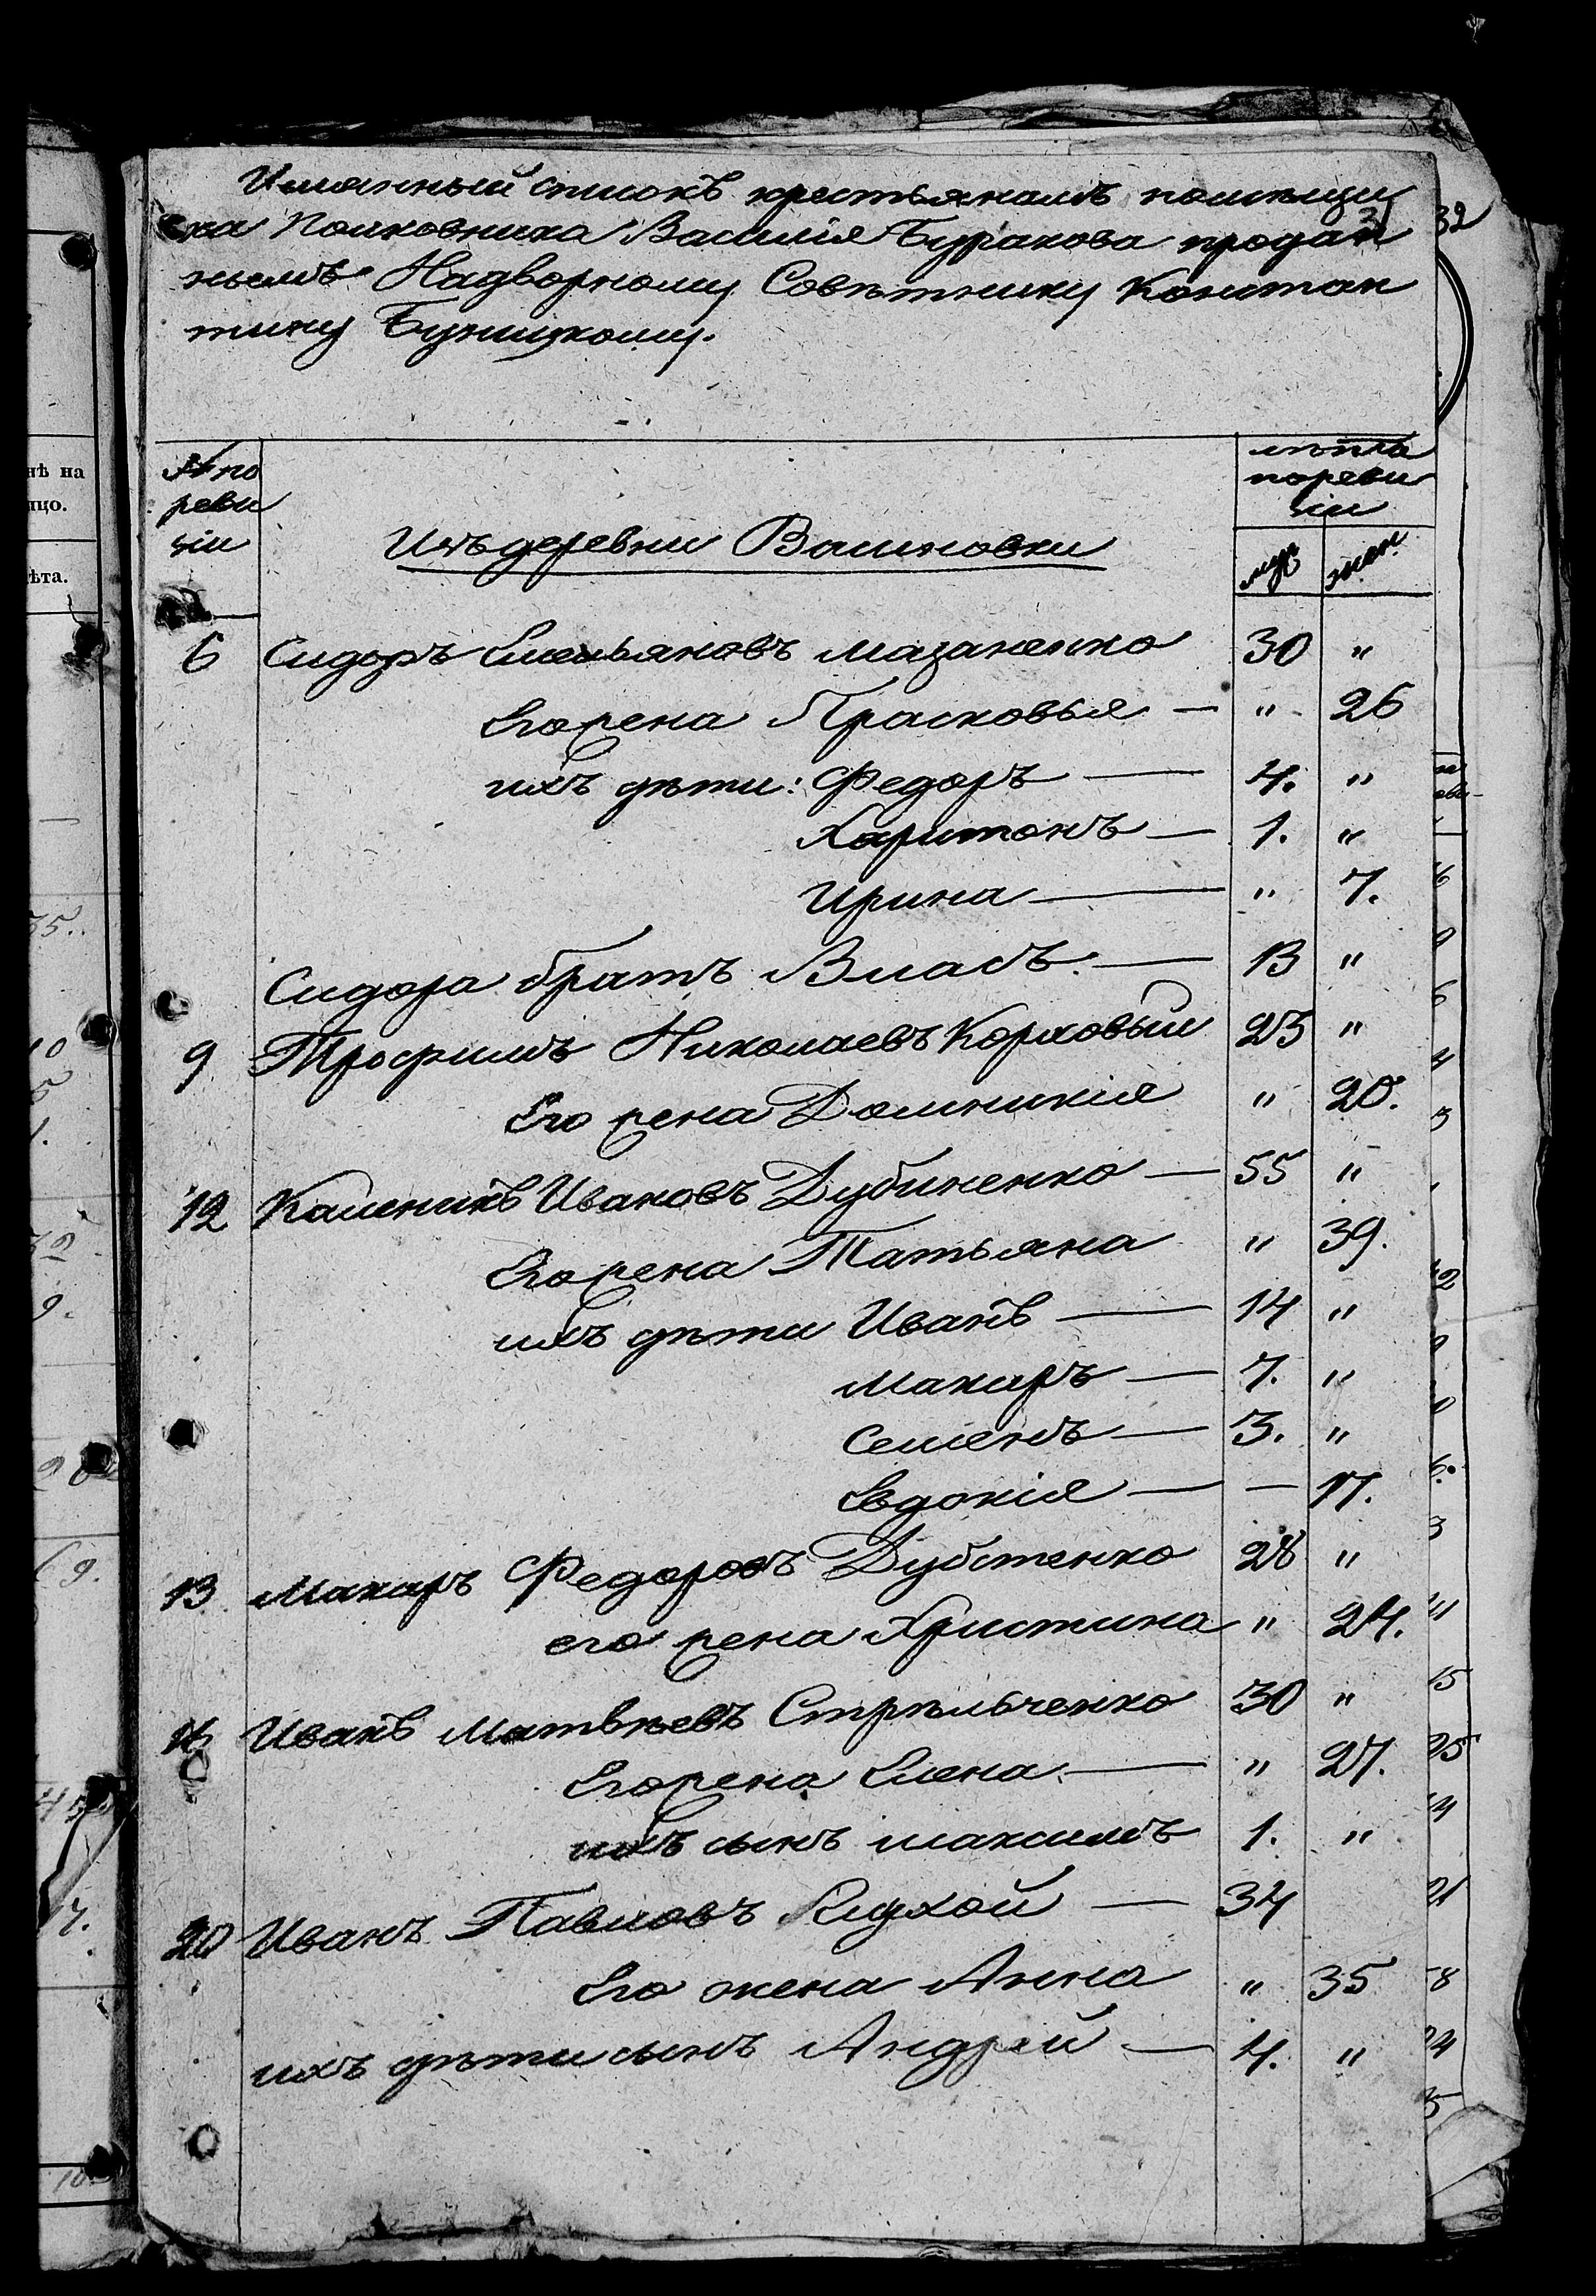 Имянный списокъ крестьянамъ помѣщи
ка Полковника Василія Буракова продан
31
32
нымъ Надворному Совѣтнику Констан
тину Буницкому.
№ по
реви
зіи
лѣта
пореви
зіи
муж
жен.
нѣ на
цо.
ѣта.
Изъ деревни Васильовки
6 Сидоръ Емельяновъ Мазаненко 30 "
Его жена Прасковья — " 26
ихъ дѣти: Федоръ — 4. "
Харитонъ — 1. "
Ирина — " 7.
Сидора братъ Власъ — 13 "
9 Трофимъ Николаевъ Корховый 23 "
Его жена Домникія " 20.
12 Каленикъ Ивановъ Дубиненко — 55 "
Его жена Татьяна " 39.
ихъ дѣти Иванъ — 14 "
Макаръ — 7. "
Семенъ — 3. "
Евдокія — — 17.
13 Макаръ Федоровъ Дубстенко 28 "
его жена Христина " 24.
Иванъ Матвѣевъ Стрѣльченко 30 "
Его жена Елена — " 27.
ихъ сынъ Максимъ 1. "
20 Иванъ Павловъ Глухой — 34
Его жена Анна " 35
ихъ дѣти сынъ Андрей — 4. "